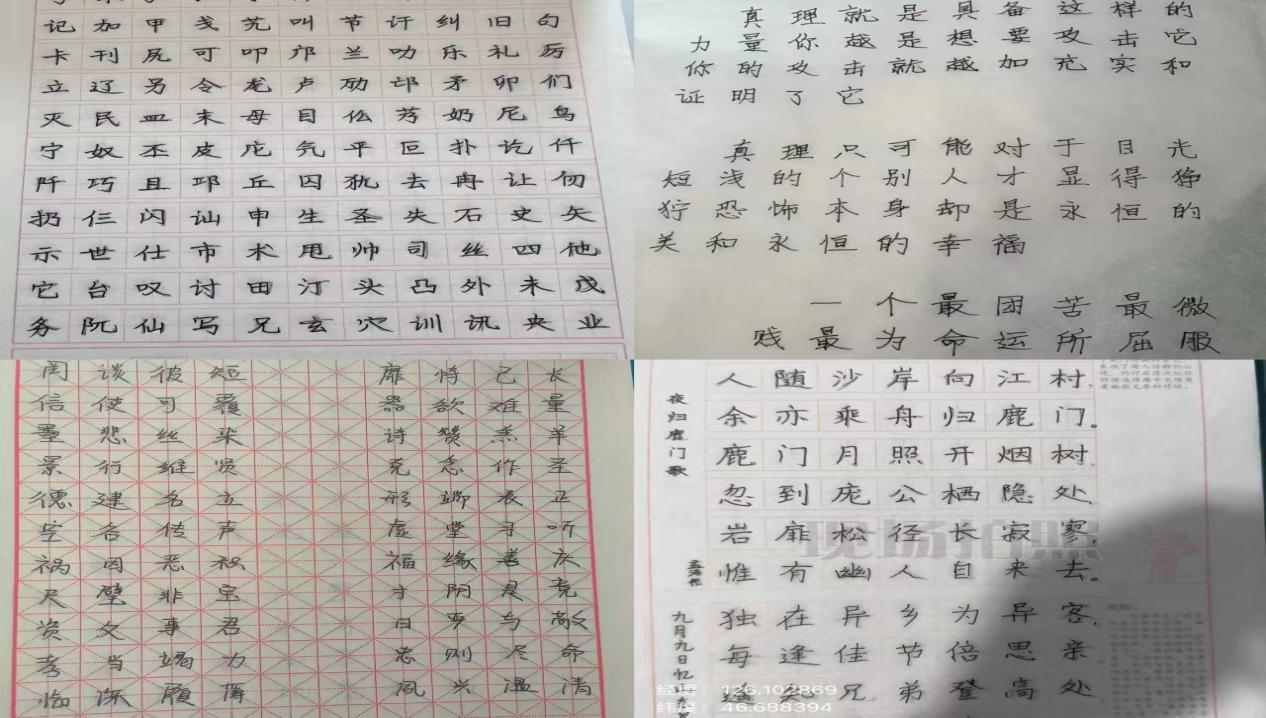 记加甲戋艽叫节讦纠旧句
卡刊尻可叩邝兰叻乐礼厉
立辽另令龙卢劢邙矛卯们
灭民皿末母目仫艿奶尼鸟
宁奴丕皮庀氕平叵扑讫仟
阡巧且邛丘囚犰去冉让仞
扔仨闪讪申生圣失石史矢
示世仕市术甩帅司丝四他
它台叹讨田汀头凸外未戊
务阮仙写兄玄穴训讯央业
真理就是具备这样的
力量你越是想要攻击它
你的攻击就越加充实和
证明了它
真理只可能对于目光
短浅的个别人才显得狰
狞恐怖本身却是永恒的
美和永恒的幸福
一个最困苦最微
贱最为命运所屈服
罔谈彼短 靡恃己长
信使可覆 器欲难量
墨悲丝染 诗赞羔羊
景行维贤 克念作圣
德建名立 形端表正
空谷传声 虚堂习听
祸因恶积 福缘善庆
尺璧非宝 寸阴是竞
资父事君 曰严与敬
孝当竭力 忠则尽命
临深履薄 夙兴温凊
夜归鹿门歌
孟浩然
人随沙岸向江村,
余亦乘舟归鹿门。
鹿门月照开烟树,
忽到庞公栖隐处,
岩扉松径长寂寥,
惟有幽人自来去。
九月九日忆山东
独在异乡为异客,
每逢佳节倍思亲
遥知兄弟登高处
现场拍照
经度: 126.102869
纬度: 46.688394